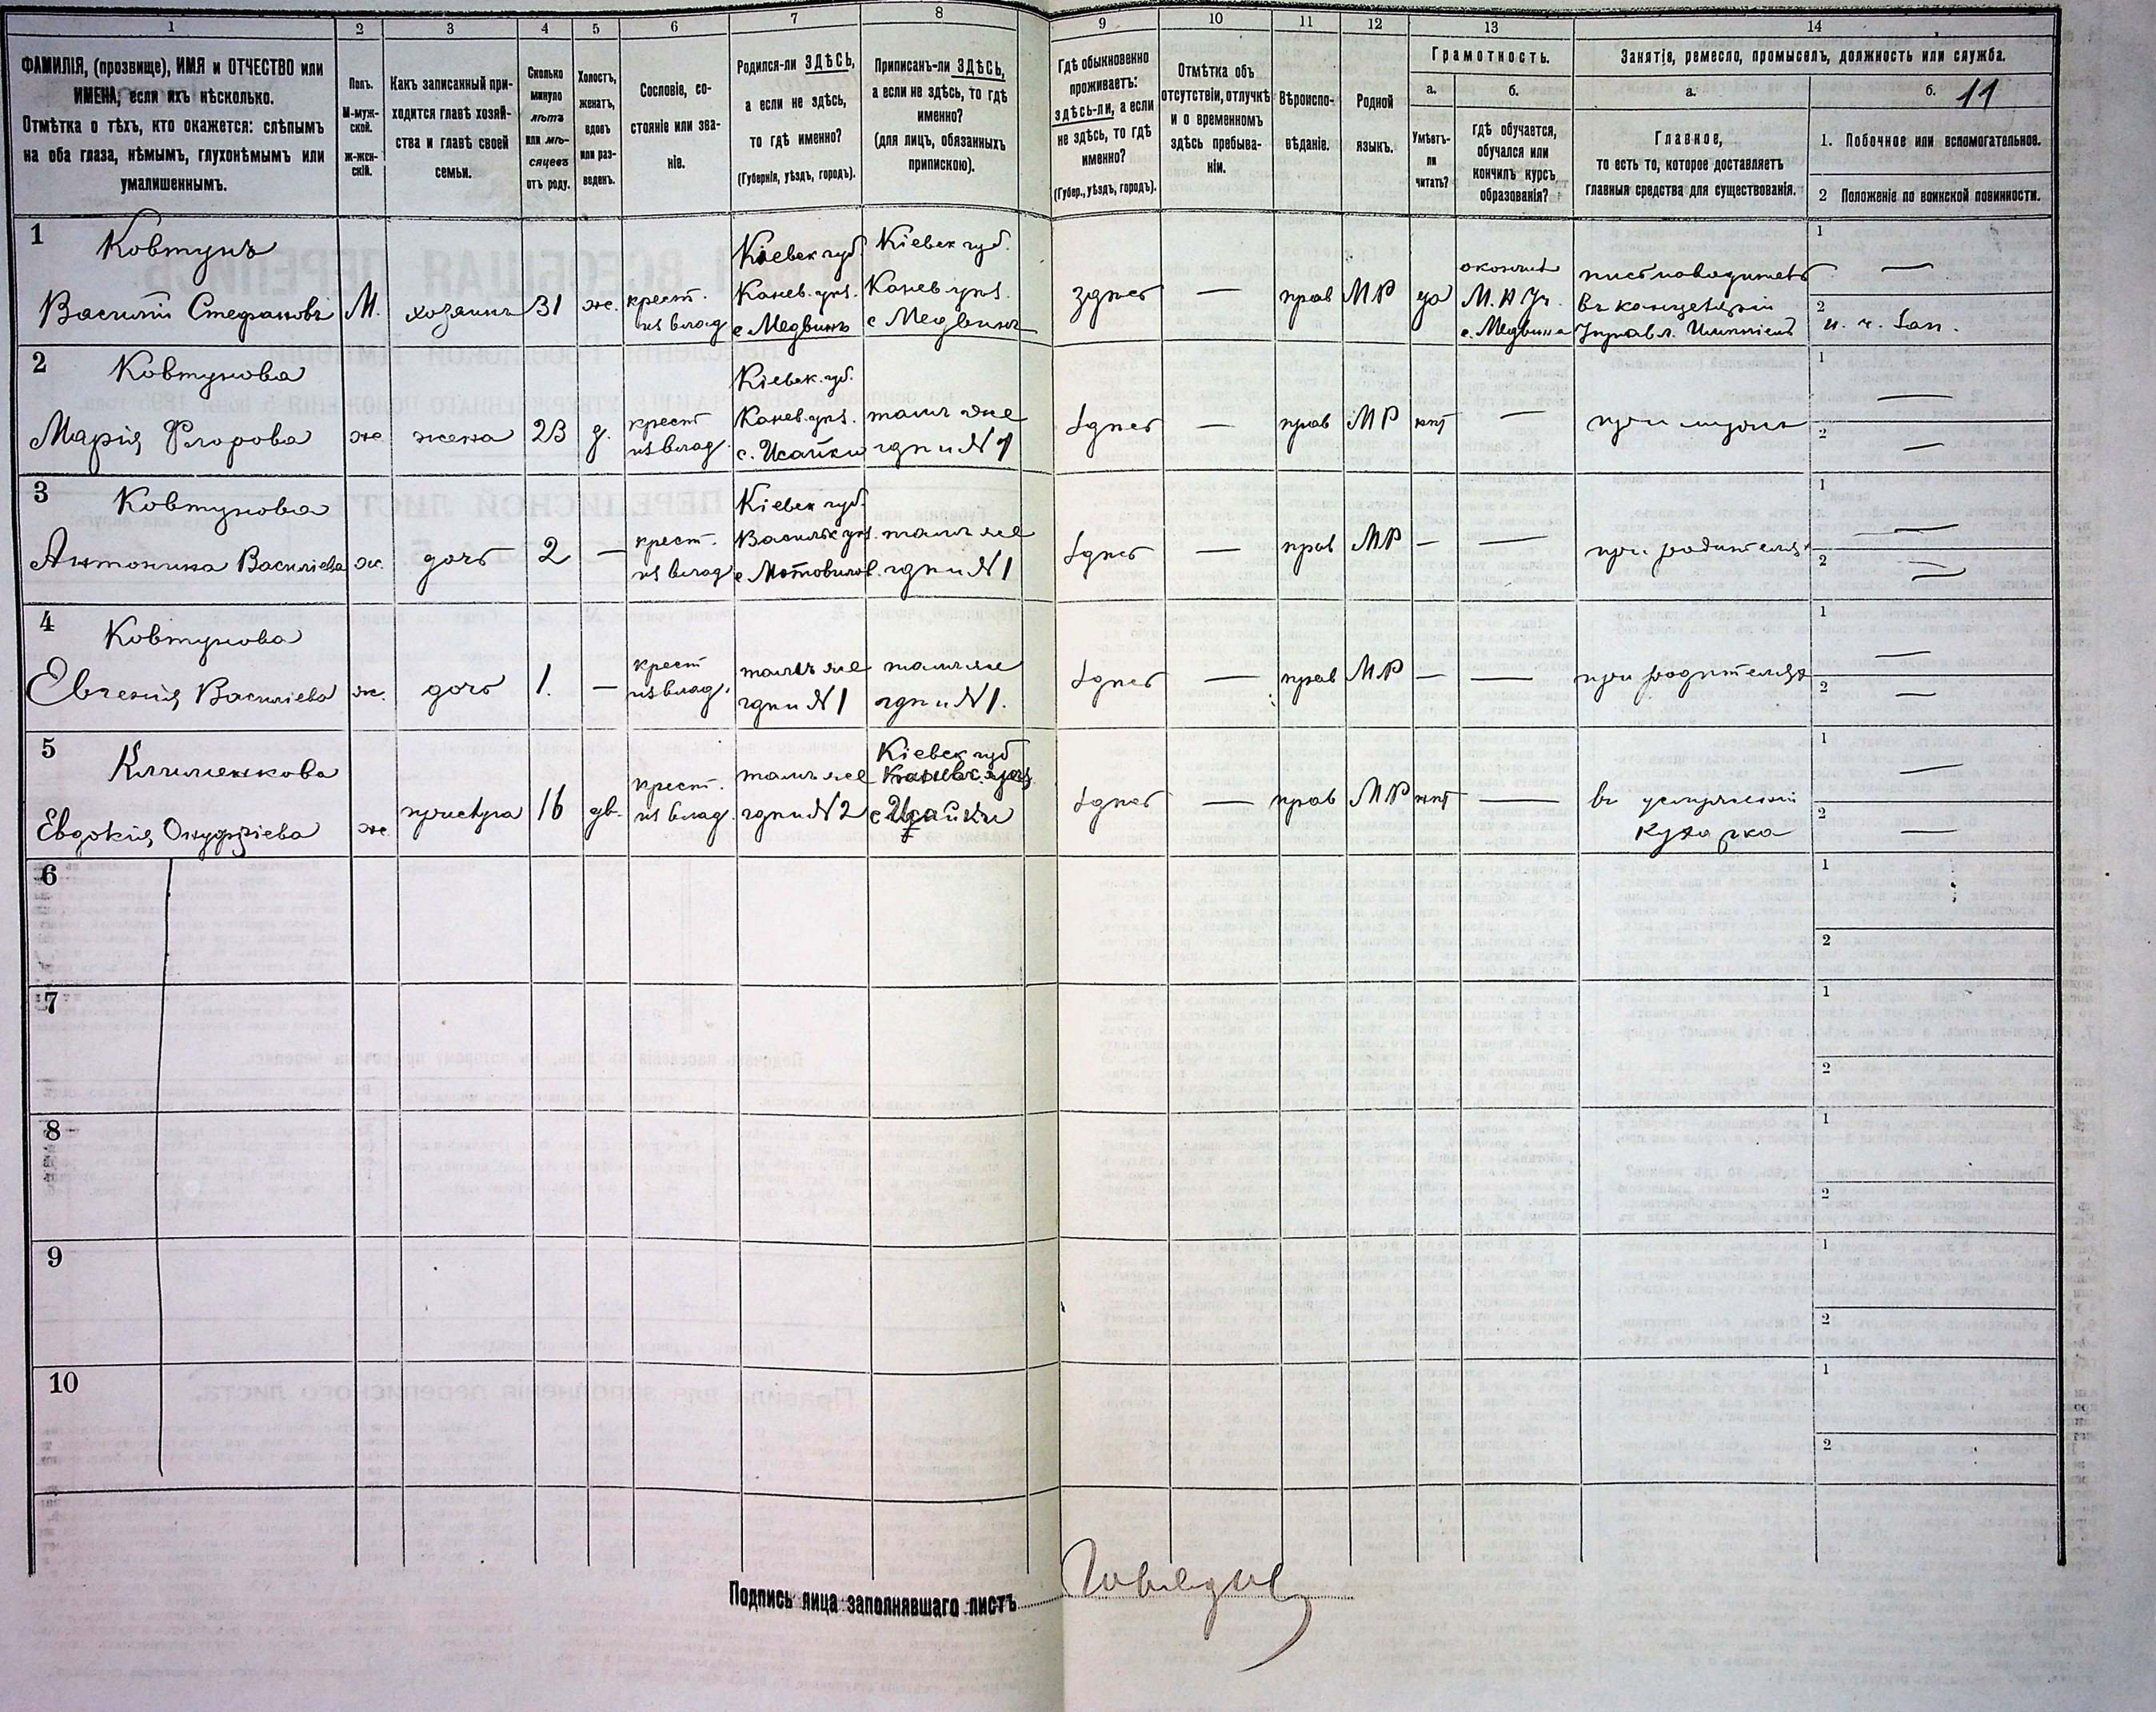 1 2 3 4 5 6 7 8 9 10 11 12 13 14
ФАМИЛІЯ, (прозвище), ИМЯ и ОТЧЕСТВО или
ИМЕНА, если ихъ нѣсколько.
Отмѣтка о тѣхъ, кто окажется: слѣпымъ
на оба глаза, нѣмымъ, глухонѣмымъ или
умалишеннымъ.
Полъ.
М-муж-
ской.
Ж-жен-
скій.
Какъ записанный при-
ходится главѣ хозяй-
ства и главѣ своей
семьи.
Сколько
минуло
лѣтъ
или мѣ-
сяцевъ
отъ роду.
Холостъ,
женатъ,
вдовъ
или раз-
веденъ.
Сословіе, со-
стояніе или зва-
ніе.
Родился-ли ЗДѢСЬ,
а если не здѣсь,
то гдѣ именно?
(Губернія, уѣздъ, городъ).
Приписанъ-ли ЗДѢСЬ,
а если не здѣсь, то гдѣ
именно?
(для лицъ, обязанныхъ
припискою).
Гдѣ обыкновенно
проживаетъ:
здѣсь-ли, а если
не здѣсь, то гдѣ
именно?
(Губер., уѣздъ, городъ).
Отмѣтка объ
отсутствіи, отлучкѣ
и о временномъ
здѣсь пребыва-
ніи.
Вѣроиспо-
вѣданіе.
Родной
языкъ.
Грамотность.
а.
Умѣетъ-
ли
читать?
б.
Гдѣ обучается,
обучался или
кончилъ курсъ
образованія?
Занятіе, ремесло, промыселъ, должность или служба.
а.
Главное,
то есть то, которое доставляетъ
главныя средства для существованія.
б. 11
1. Побочное или вспомогательное.
2 Положеніе по воинской повинности.
1
Ковтунъ
Василій Стефановъ
М.
хозяинъ
31
же.
крест.
из влад
Кіевск губ.
Канев. уѣз.
с Медвинъ
Кіевск губ.
Канев. уѣз.
с Медвинъ
здѣсь
—
прав
МР
да
окончил
М. Н Уч.
с. Медвина
письмоводитель
въ канцеляріи
1 —
2
2
Ковтунова
Марія Флорова
же
жена
23
з.
крест
из влад.
Кіевск. губ.
Канев. уѣз.
с. Исайки
тамъ же
гдѣ и N 1
здѣсь
—
прав
МР
нѣт
—
при мужѣ
1 —
2 —
3
Ковтунова
Антонина Василіева
ж.
дочь
2
—
крест.
из влад
Кіевск губ.
Васильк уѣз.
с Мотовилов.
тамъ же
гдѣ и N 1
здѣсь
—
прав
МР
—
—
при родителях
1 —
2 —
4
Ковтунова
Евгенія Василіева
ж.
дочь
1.
—
крест
из влад.
тамъ же
гдѣ и N 1
тамъ же
гдѣ и N 1.
здѣсь
—
прав
МР
—
—
при родителях
1 —
2 —
5
Клименкова
Евдокія Онуфріева
же
прислуга
16
дв.
крест.
из влад.
тамъ же
гдѣ и N 2
Кіевск губ
Каневск. уѣз
с Исайки
здѣсь
—
прав
МР
нѣт
—
въ услуженіи
кухарка
1 —
2 —
6
1
2
7
1
2
8
1
2
9
1
2
10
1
2
Подпись лица заполнявшаго листъ